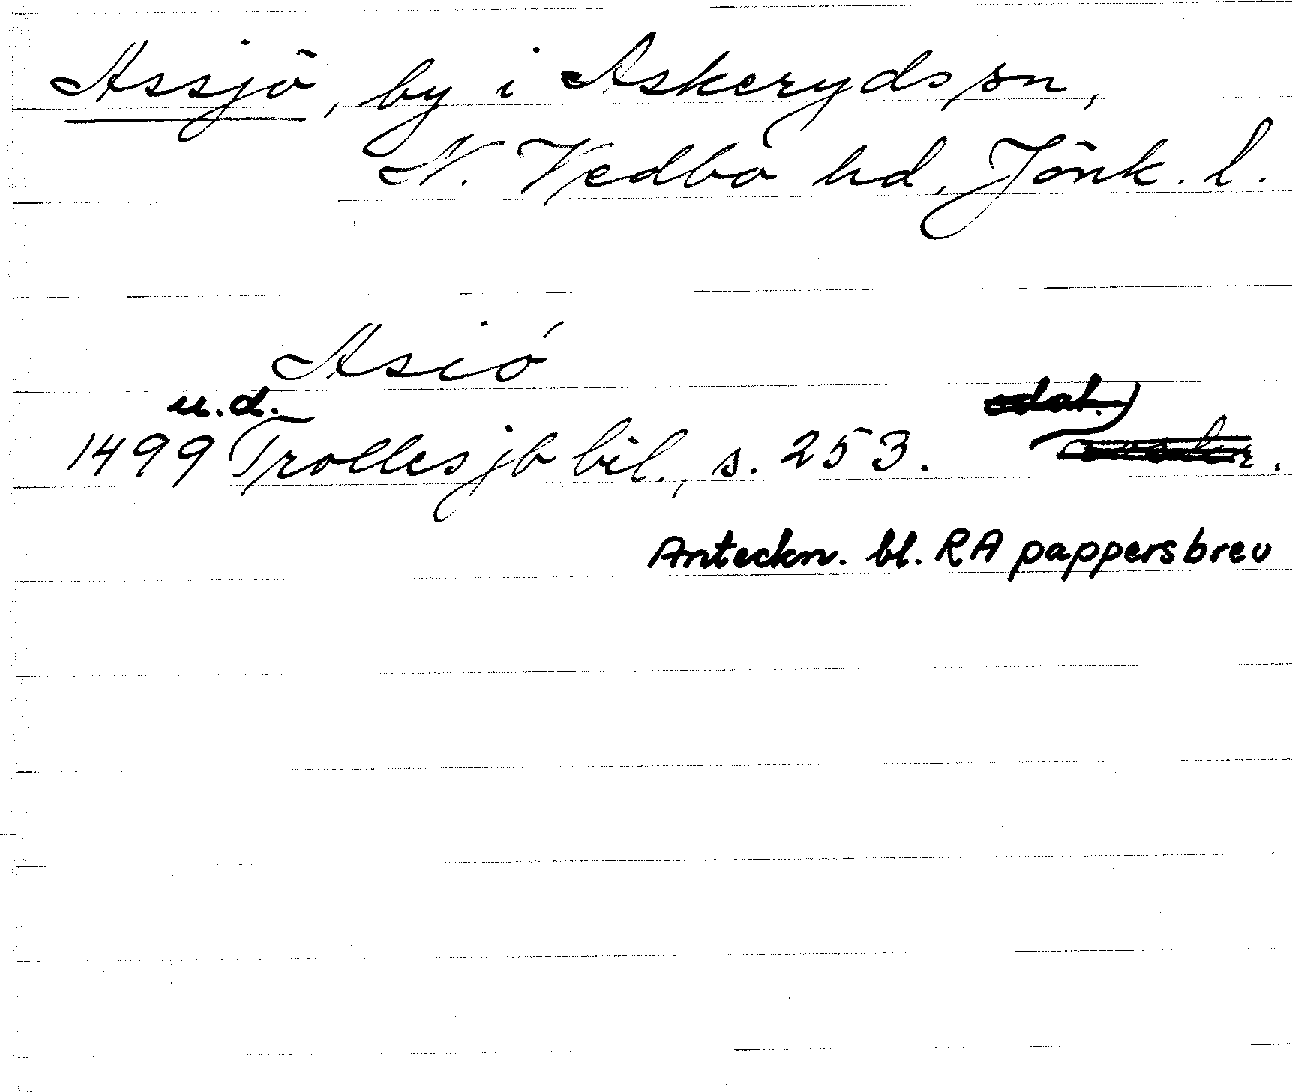 Assjö, by i Askeryds sn,
N. Vedbo hd, Jönk. l.
Asió
u.d.
1499 Trolles jb bil., s. 253.
Anteckn. bl. RA pappersbrev